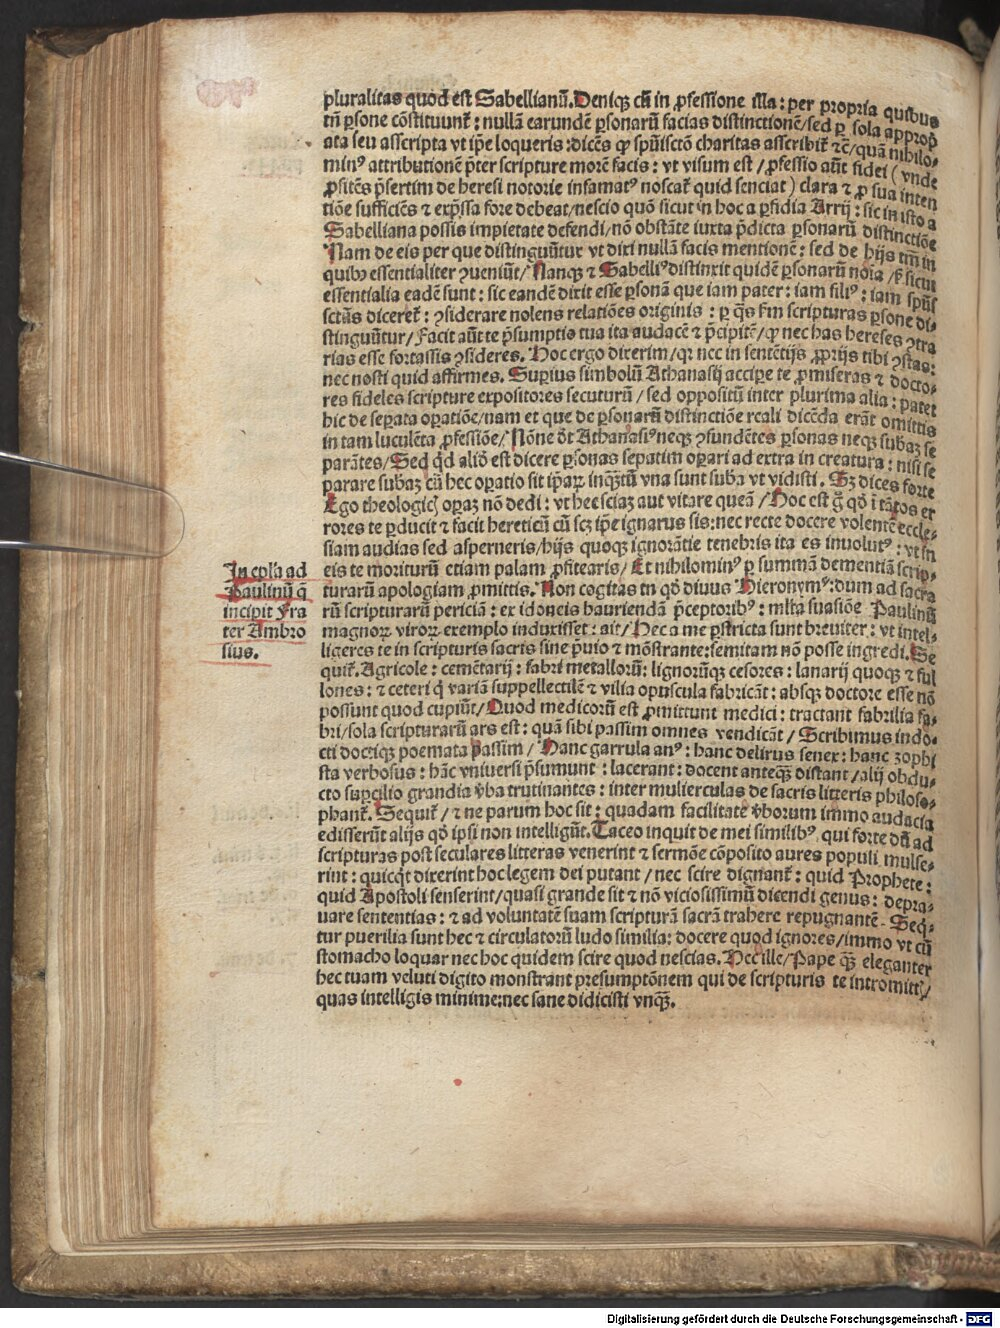 pluralitas quod est Sabellianū. Deniqꝫ cū in ꝓfessione illa: per propria quibus
tn̄ ꝑsone cōstituunt᷑: nullā earundē ꝑsonarū facias distinctionē/sed ꝑ sola approp̄
ata seu asscripta vt ip̄e loqueris: dicēs ꝙ spūiscto charitas asscribit᷑ ⁊c̄/quā nihilo⸗
minꝰ attributionē p̄ter scripture morē facis: vt visum est/ꝓfessio aūt fidei (vnde
ꝓsitēs p̄sertim de heresi notorie infamatꝰ noscat᷑ quid senciat) clara ⁊ ꝓ sua inten
tiōe sufficiēs ⁊ exp̄ssa fore debeat/nescio quō sicut in hoc a ꝑfidia Arrij: sic in isto a
Sabelliana possis impietate defendi/nō obstāte iuxta p̄dicta ꝑsonarū distinctiōe
Nam de eis per que distinguūtur vt dixi nullā facis mentionē: sed de hijs tm̄ in
quibꝰ essentialiter ꝯueniūt/Nanqꝫ ⁊ Sabelliꝰ distinxit quidē ꝑsonarū noīa/ſꝫ sicut
essentialia eadē sunt: sic eandē dixit esse ꝑsonā que iam pater: iam filiꝰ: iam spūs
sctūs diceret᷑: ꝯsiderare nolens relatiōes originis: ꝑ q̄s fm̄ scripturas ꝑsone di⸗
stinguūtur/Facit aūt te p̄sumptio tua ita audacē ⁊ p̄cipitē/ꝙ nec has hereses ꝯtra
rias esse fortassis ꝯsideres. Hoc ergo dixerim/qꝛ nec in sentētijs ꝓprijs tibi ꝯstas:
nec nosti quid affirmes. Suꝑius simbolū Athanasij accipe te ꝓmiseras ⁊ docto⸗
res fideles scripture expositores secuturū/sed oppositū inter plurima alia: patet
hic de seꝑata oꝑatiōe/nam et que de ꝑsonarū distinctiōe reali dicēda erāt omittis
in tam luculēta ꝓfessiōe/Nōne dt̄ Athanasiꝰ neqꝫ ꝯfundētes ꝑsonas neqꝫ subaꝫ se
parātes/Sed qd̄ aliō est dicere ꝑsonas seꝑatim oꝑari ad extra in creatura: nisi se
parare subaꝫ cū hec oꝑatio sit ip̄aꝝ inqꝫtū vna sunt suba vt vidisti. Sꝫ dices forte
Ego theologicꝭ oꝑaꝫ nō dedi: vt hec sciaꝫ aut vitare queā/Hoc est g̊ qd̄ ī tātos er
rores te ꝑducit ⁊ facit hereticū cū scꝫ ip̄e ignarus sis: nec recte docere volentē eccle⸗
siam audias sed asperneris/hijs quoqꝫ ignorātie tenebris ita es inuolutꝰ: vt in
eis te moriturū etiam palam ꝓfitearis/Et nihilominꝰ ꝑ summā dementiā scrip⸗
turarū apologiam ꝓmittis. Non cogitas tn̄ qd̄ diuus Hieronymꝰ: dum ad sacra
rū scripturarū periciā: ex idoneis hauriendā p̄ceptoribꝰ: mlta suasiōe Paulinū
magnoꝝ viroꝝ exemplo induxisset: ait/Hec a me ꝑstricta sunt breuiter: vt intel⸗
ligeres te in scripturis sacris sine p̄uio ⁊ mōstrante: semitam nō posse ingredi. Se
quit᷑. Agricole: cemētarij: fabri metalloruꝫ: lignorūqꝫ cesores: lanarij quoqꝫ ⁊ ful
lones: ⁊ ceteri q̄ variā suppellectilē ⁊ vilia opuscula fabricāt: absqꝫ doctore esse nō
possunt quod cupiūt/Quod medicorū est ꝓmittunt medici: tractant fabrilia fa⸗
bri/sola scripturarū ars est: quā sibi passim omnes vendicāt/Scribimus indo⸗
cti doctiqꝫ poemata passim/Hanc garrula anꝰ: hanc delirus senex: hanc zophi
sta verbosus: hāc vniuersi p̄sumunt: lacerant: docent anteqꝫ distant/alij obdu⸗
cto suꝑcilio grandia v̄ba trutinantes: inter mulierculas de sacris litteris philoso⸗
phant᷑. Sequit᷑/⁊ ne parum hoc sit: quadam facilitate v̄borum immo audacia
edisserūt alijs qd̄ ipsi non intelligūt. Taceo inquit de mei similibꝰ, qui forte dū ad
scripturas post seculares litteras venerint ⁊ sermōe cōposito aures populi mulse⸗
rint: quicqͥt dixerint hoc legem dei putant/nec scire dignant᷑: quid Prophete:
quid Apostoli senserint/quasi grande sit ⁊ nō viciosissimū dicendi genus: depra⸗
uare sententias: ⁊ ad voluntatē suam scripturā sacrā trahere repugnantē. Seqͥ⸗
tur puerilia sunt hec ⁊ circulatorū ludo similia: docere quod ignores/immo vt cū
stomacho loquar nec hoc quidem scire quod nescias. Hec ille/Pape qꝫ eleganter
hec tuam veluti digito monstrant presumptōnem qui de scripturis te intromittꝭ/
quas intelligis minime: nec sane didicisti vnqꝫ.
In epl'a ad
Paulinū q̄
incipit Fra
ter Ambro
sius.
Digitalisierung gefördert durch die Deutsche Forschungsgemeinschaft - DFG